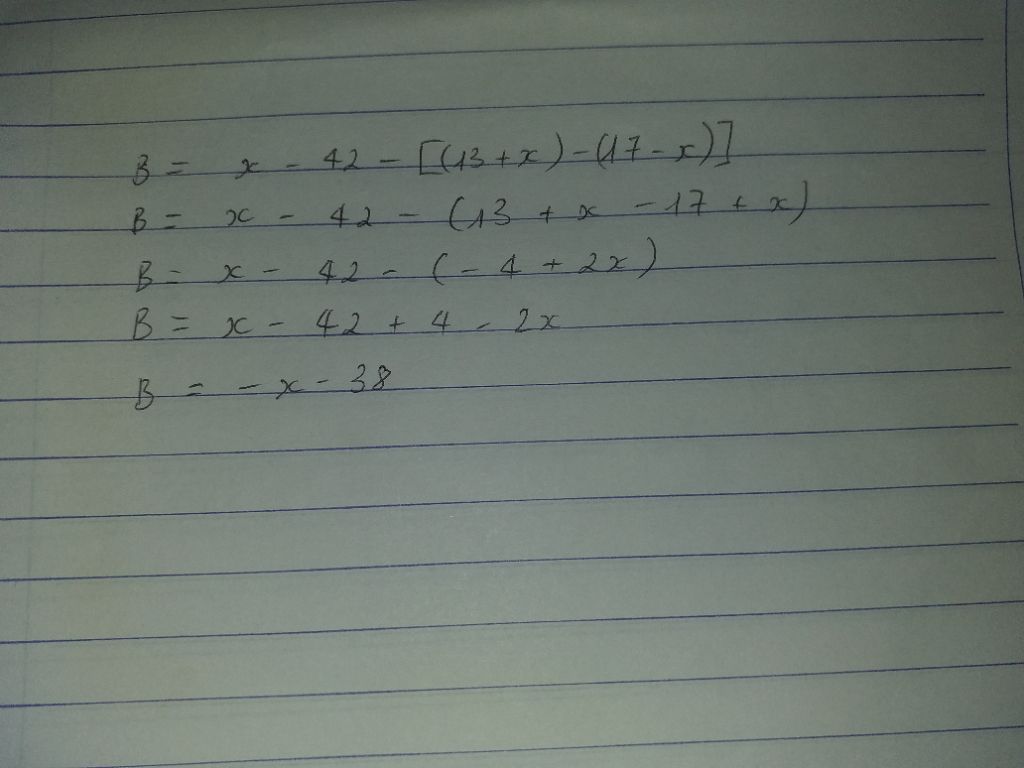 B = x - 42 - [(13 + x) - (17 - x)]
B = x - 42 - (13 + x - 17 + x)
B = x - 42 - (- 4 + 2x)
B = x - 42 + 4 - 2x
B = - x - 38